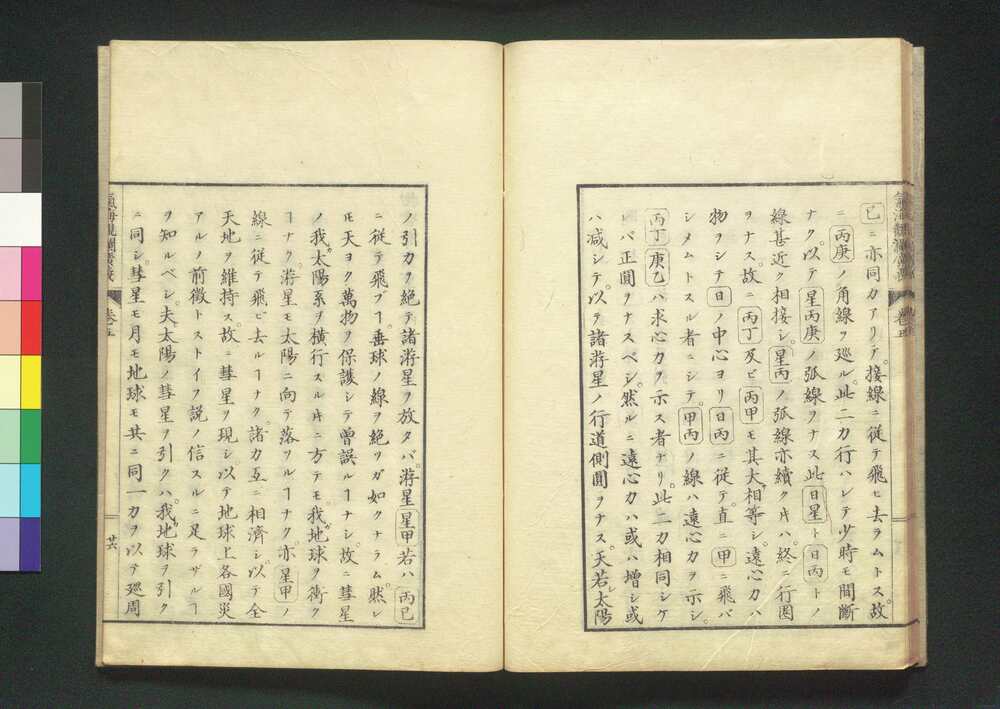 巳ニ亦同カアリテ接線ニ従テ飛ヒ去ラムトス故
ニ丙庚ノ角線ヲ巡ル此二力行ハレテ少時モ間断
ナク以テ星丙庚ノ弧線ヲナス此日星ト日丙トノ
線甚近ク相接シ星丙ノ弧線亦續ク片ハ終ニ行圏
ヲナス故ニ丙丁及ビ丙甲モ其大相等シ遠心力ハ
物ヲシテ日ノ中心ヨリ日丙ニ従テ直ニ甲ニ飛バ
シメムトスル者ニシテ甲丙ノ線ハ遠心力ヲ示シ
丙丁庚乙ハ求心力ヲ示ス者ナリ此二力相同シケ
レバ正圓ヲナスベシ然ルニ遠心力ハ或ハ増シ或
ハ減シテ以テ諸游星ノ行道側圓ヲナス天若太陽
ノ引力ヲ絶テ諸游星ヲ放タバ游星星甲若ハ丙巳
ニ従テ飛ブヿ垂球ノ線ヲ絶リガ如クナラム然レ
モ天ヨク萬物ヲ保護シテ曽誤ルヿナシ故ニ彗星
ノ我太陽系ヲ横行スル片ニ方テモ我地球ヲ衝ク
ヿナク游星モ太陽ニ向テ落ツルヿナク亦星甲ノ
線ニ従テ飛ビ去ルヿナク諸力互ニ相濟シ以テ全
天地ヲ維持ス故ニ彗星ヲ現シ以テ地球上各國災
アルノ前徴トストイフ説ノ信スルニ足ラザルヿ
ヲ知ルベシ夫太陽ノ彗星ヲ引クハ我地球ヲ引ク
ニ同シ彗星モ月モ地球モ共ニ同一力ヲ以テ廻周
卷五
廿六